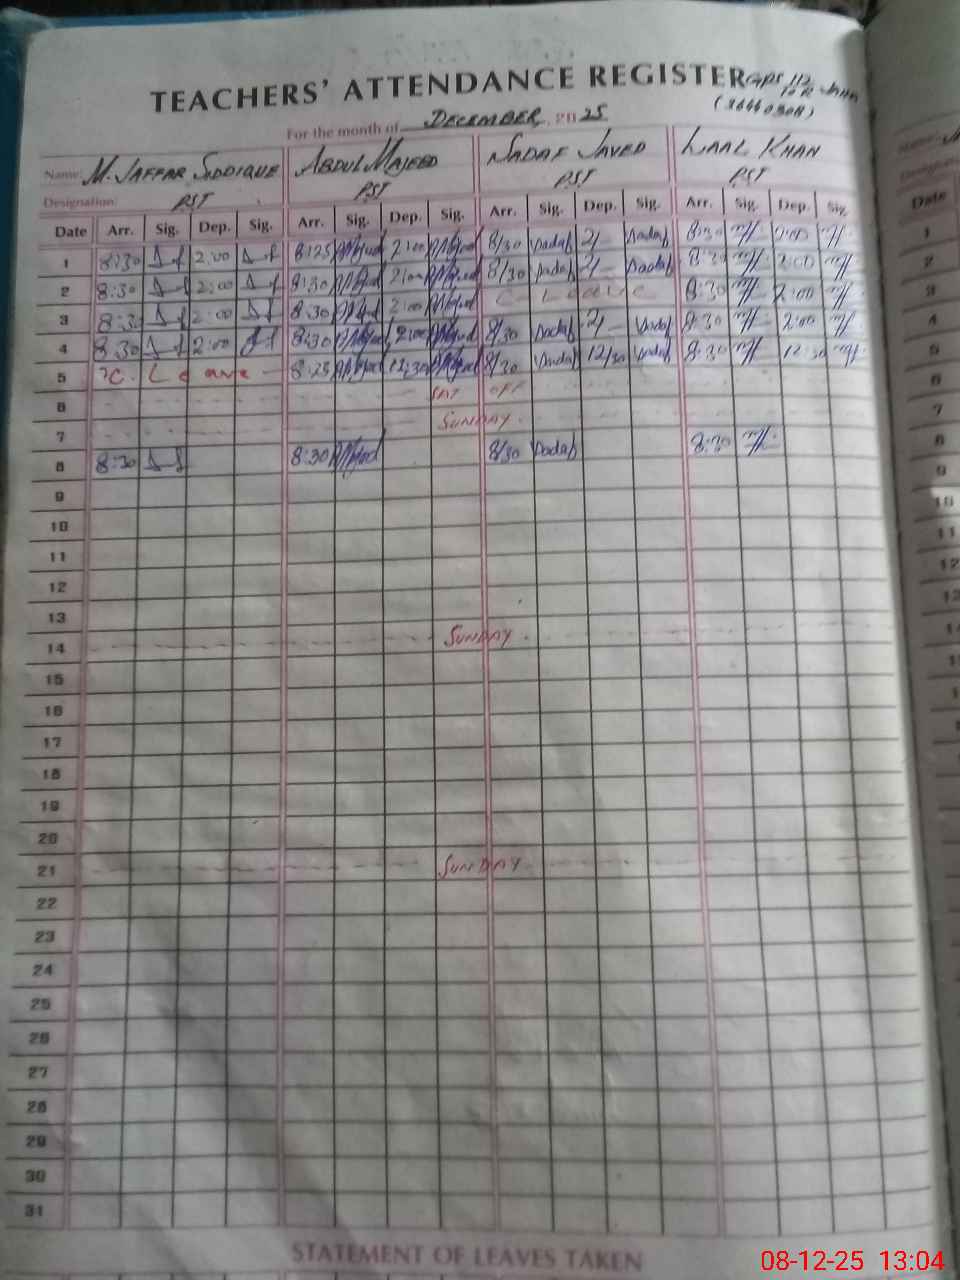 TEACHERS' ATTENDANCE REGISTER GPS 112
(36440308)
For the month of DECEMBER, 2025
Name: M. JAFFAR SIDDIQUE ABDUL MAJEED SADAF JAVED LAAL KHAN
Designation: PST PST PST PST
Date Arr. Sig. Dep. Sig. Arr. Sig. Dep. Sig. Arr. Sig. Dep. Sig. Arr. Sig. Dep. Sig.
1 8:30 2:00 8:25 AMajeed 2:00 AMajeed 8/30 Sadaf 2/- Sadaf 8:30 2:00
2 8:30 2:00 8:30 AMajeed 2:00 AMajeed 8/30 Sadaf 2/- Sadaf 8:30 2:00
3 8:30 2:00 8:30 AMajeed 2:00 AMajeed C - Leave 8:30 2:00
4 8:30 2:00 8:30 AMajeed 2:00 AMajeed 8/30 Sadaf 2/- Sadaf 8:30 2:00
5 C. Leave 8:25 AMajeed 12:30 AMajeed 8/30 Sadaf 12/30 Sadaf 8:30 12:30
6 SAT OFF
7 SUNDAY
8 8:30 8:30 AMajeed 8/30 Sadaf 8:30
9
10
11
12
13
14 SUNDAY
15
16
17
18
19
20
21 SUNDAY
22
23
24
25
26
27
28
29
30
31
STATEMENT OF LEAVES TAKEN
08-12-25 13:04
Date
1
2
3
4
5
6
7
8
9
10
11
12